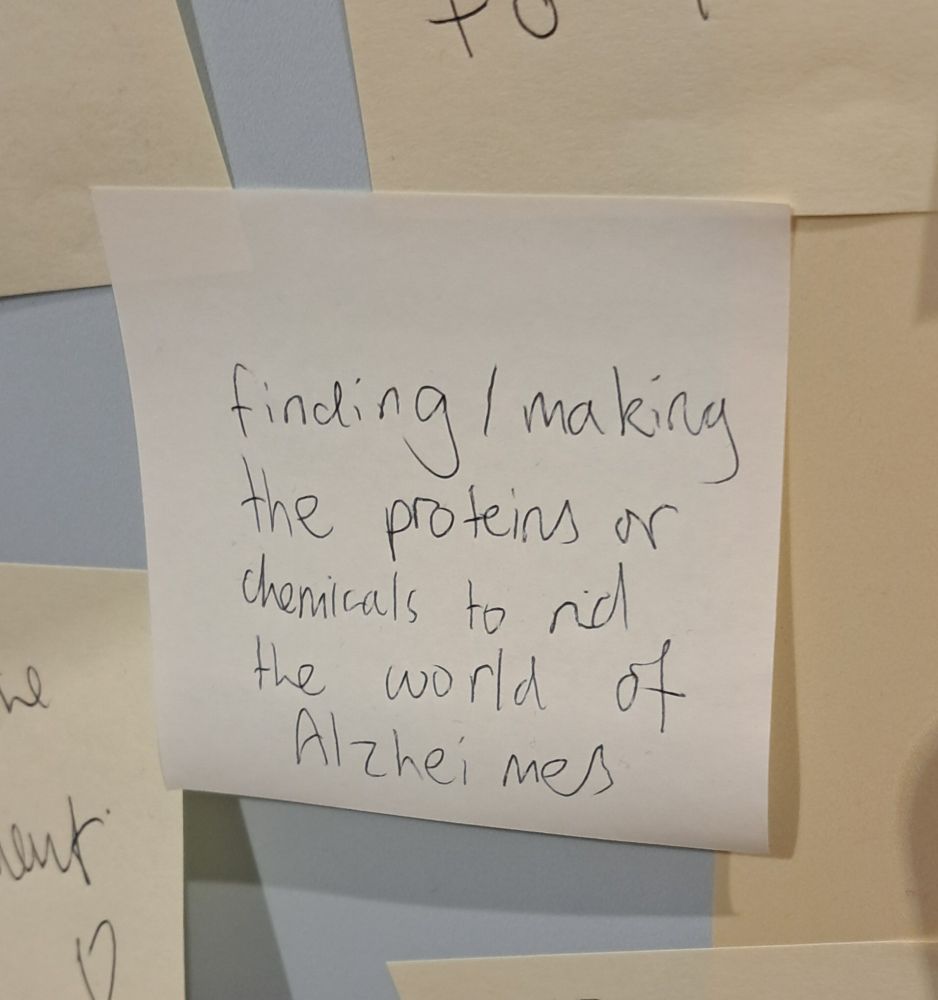 to
finding / making
the proteins or
chemicals to rid
the world of
Alzheimes